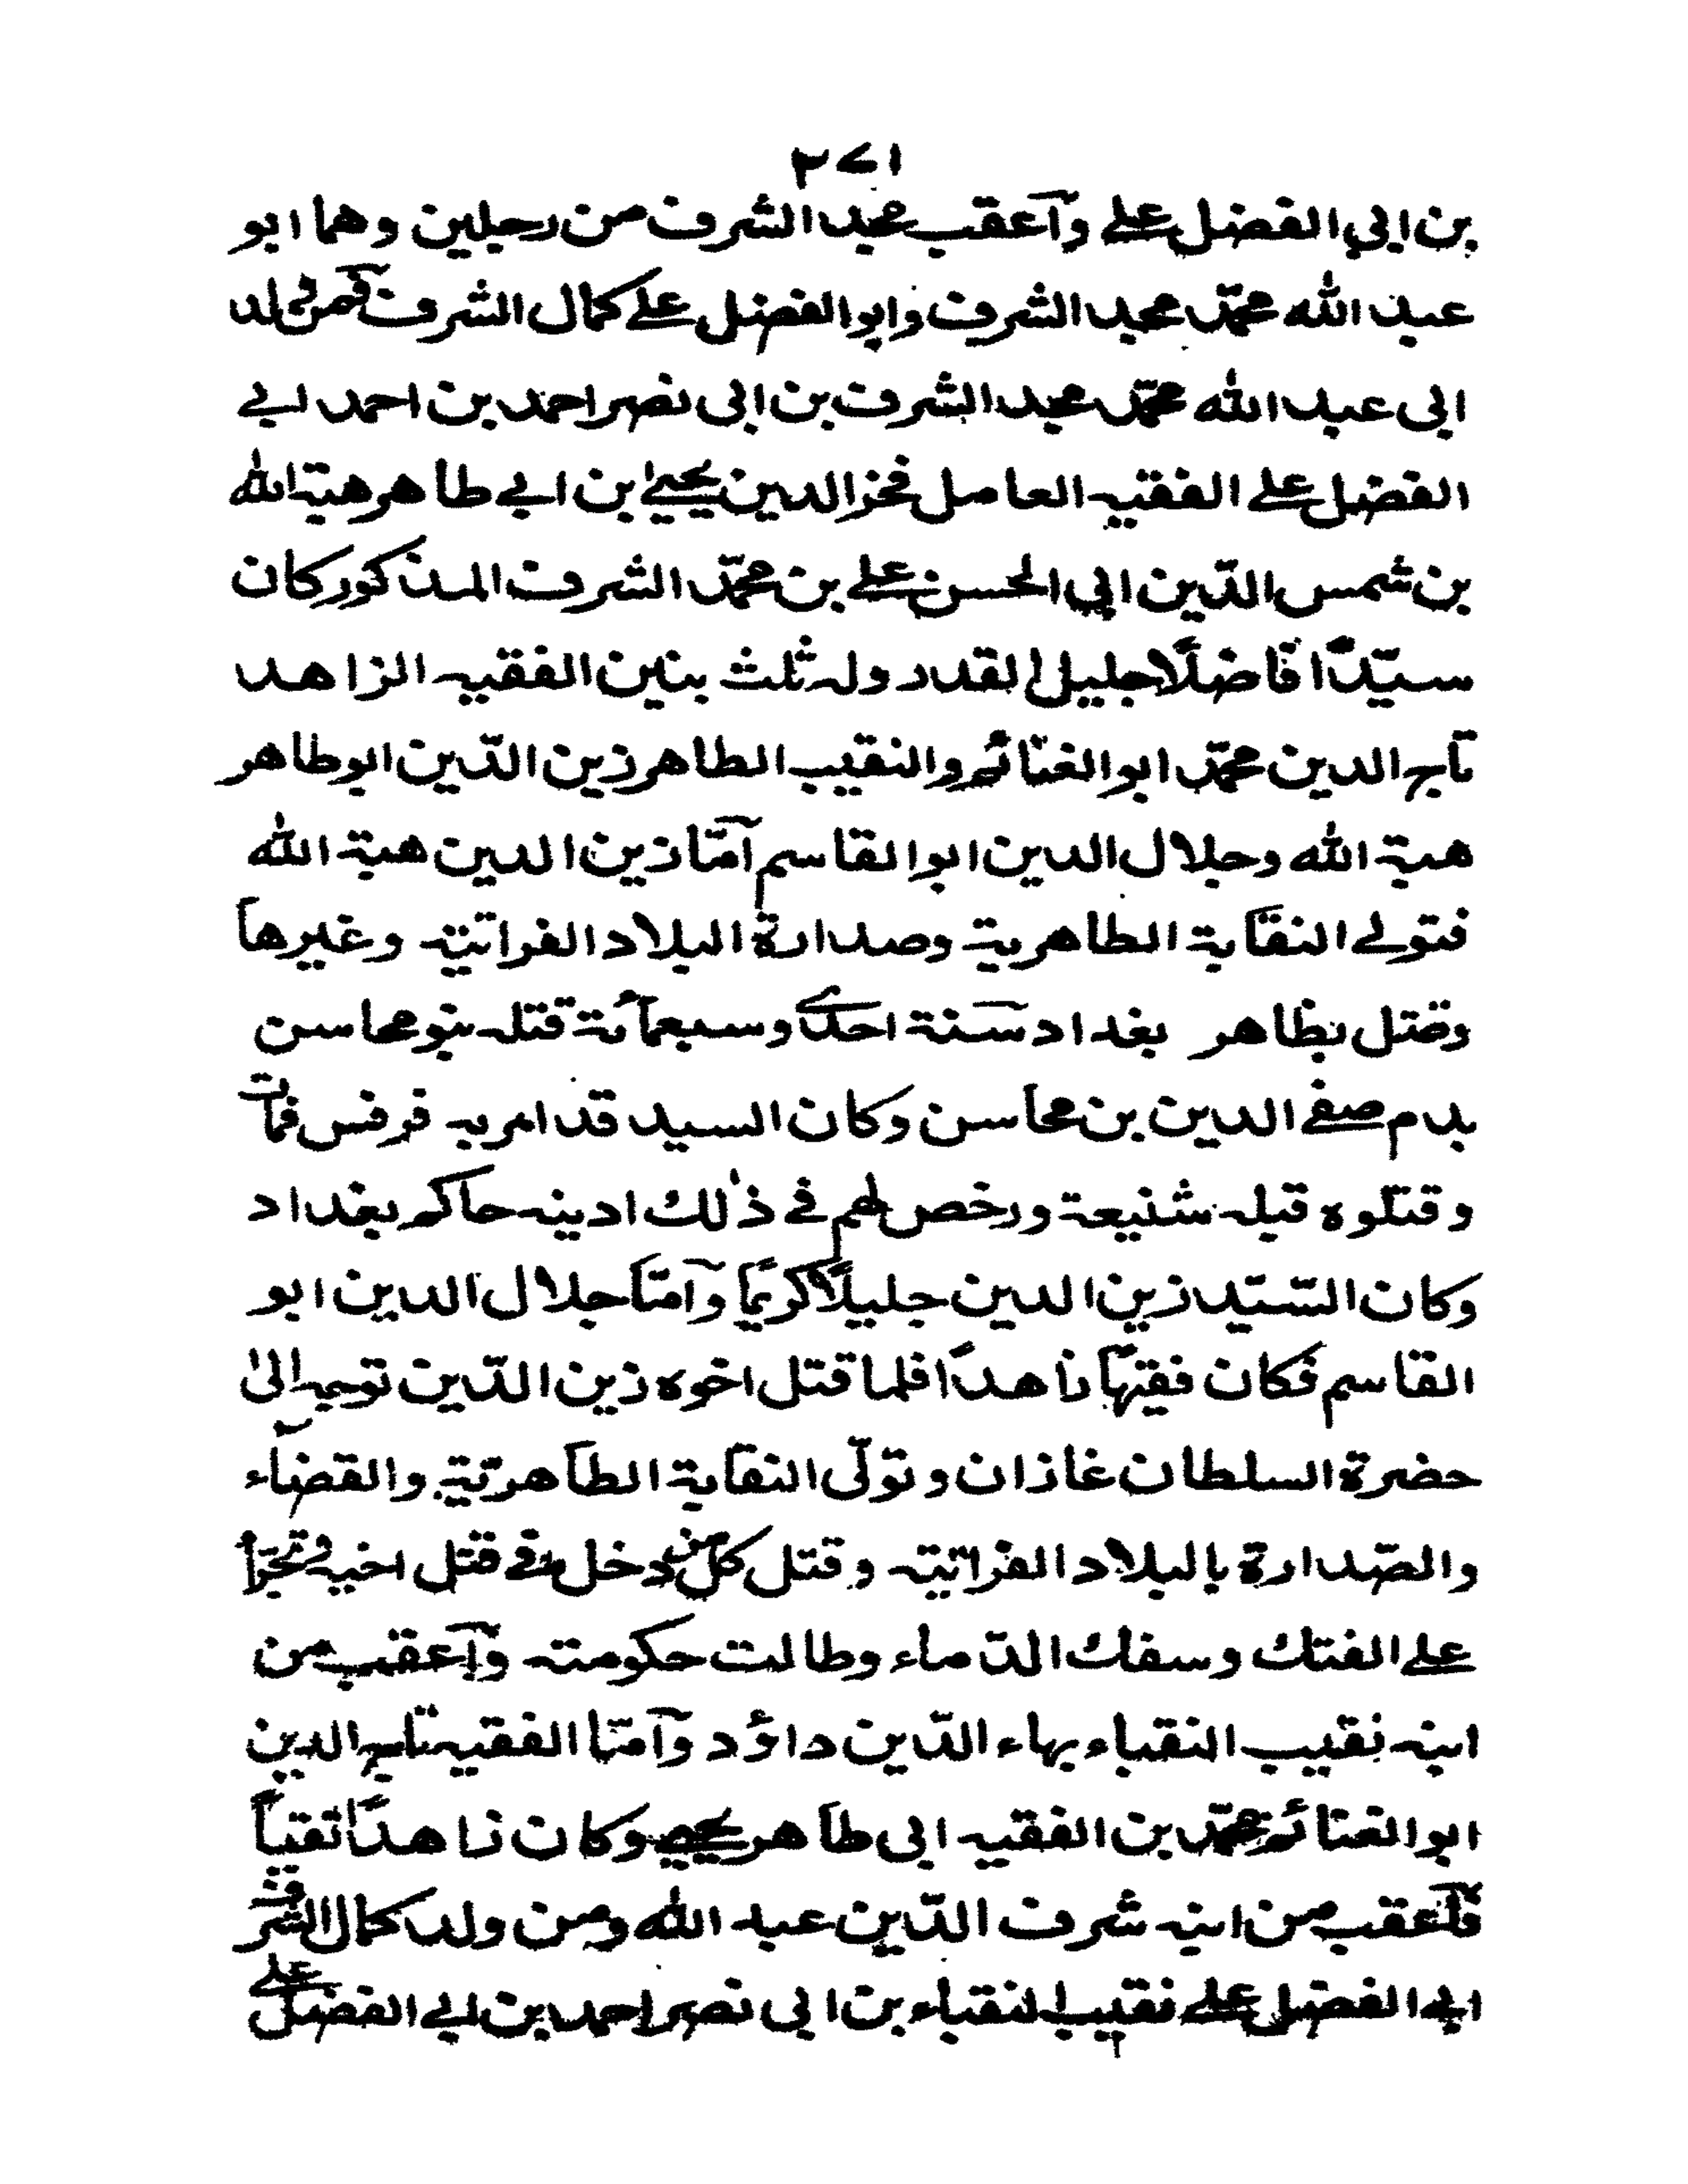 ٢٧١
بن ابي الفضل علي وآعقب مجد الشرف من رجلين وهما ابو
عبد الله محمّد مجد الشرف وابو الفضل علي كمال الشرف فمن ولد
ابى عبد الله محمّد مجد الشرف بن ابى نصر احمد بن احمد ابي
الفضل علي الفقيه العامل فخز الدين يحيىٰ بن ابي طاهر هبة الله
بن شمس الدّين ابي الحسن علي بن محمّد الشرف المذكور كان
سيّدًا فاضلًا جليل القدر وله ثلث بنين الفقيه الزاهد
تاج الدين محمّد ابو الغنائم والنقيب الطاهر زين الدّين ابو طاهر
هبة الله وجلال الدين ابو القاسم آمّا زين الدين هبة الله
فتولي النقابة الطاهرية وصدارة البلاد الفراتيّة وغيرها
وقتل بظاهر بغداد سنة احدى وسبعمائة قتله بنو محاسن
بدم صفي الدين بن محاسن وكان السيد قد امر به فرفس فمات
وقتلوه قتله شنيعة ورخص لهم في ذٰلك ادينه حاكم بغداد
وكان السّيّد زين الدين جليلًا كريمًا وآمّا جلال الدين ابو
القاسم فكان فقيهًا زاهدًا فلما قتل اخوه زين الدّين توجه الىٰ
حضرة السلطان غازان وتولّى النقابة الطاهريّة والقضاء
والصّدارة بالبلاد الفراتيّة وقتل كل من دخل في قتل اخيه وتجرّأ
علي الفتك وسفك الدّماء وطالت حكومته وآعقب من
ابنه نقيب النقباء بهاء الدّين داؤد وآمّا الفقيه تاج الدين
ابو الغنائم محمّد بن الفقيه ابى طاهر يحيى وكان زاهدًا تقيًا
فآعقب من ابنه شرف الدّين عبد الله ومن ولد كمال الشرف
ابي الفضل علي نقيب النقباء بن ابى نصر احمد بن ابي الفضل علي